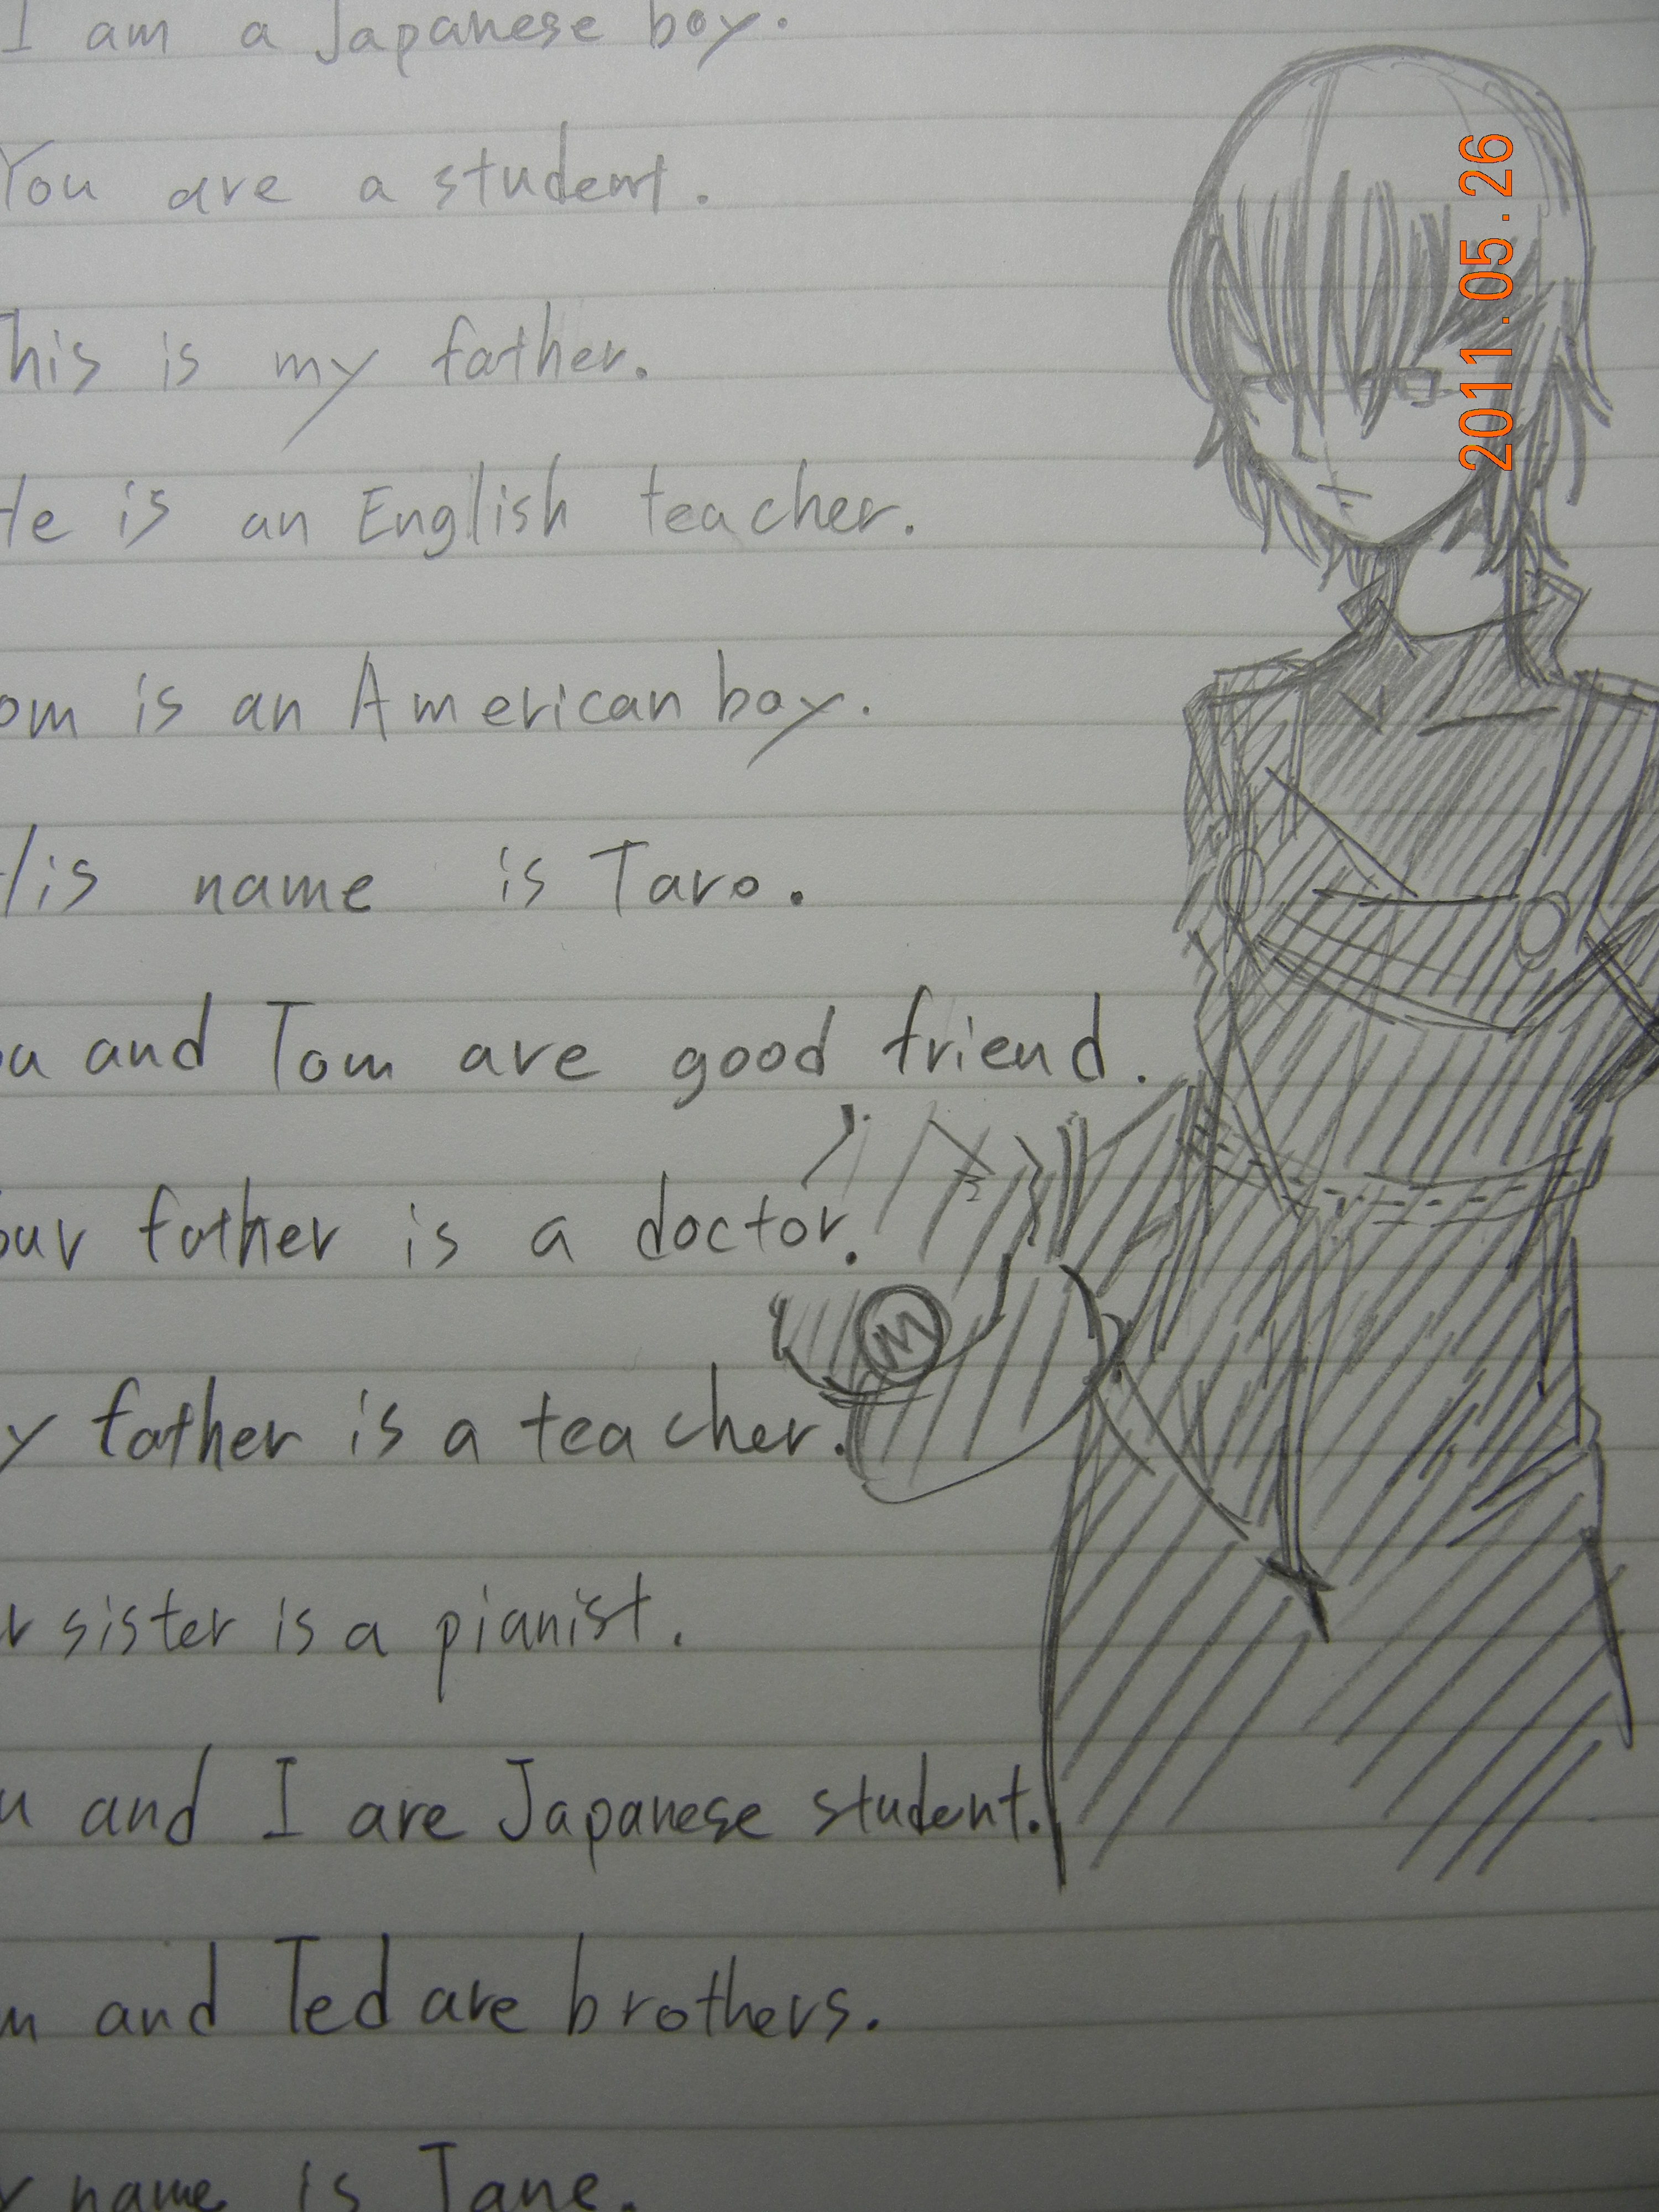 I am a Japanese boy.
You are a student.
This is my father.
He is an English teacher.
om is an American boy.
His name is Taro.
ou and Tom are good friend.
our father is a doctor.
y father is a teacher.
r sister is a pianist.
u and I are Japanese student.
m and Ted are brothers.
r name is Jane.
2011.05.26